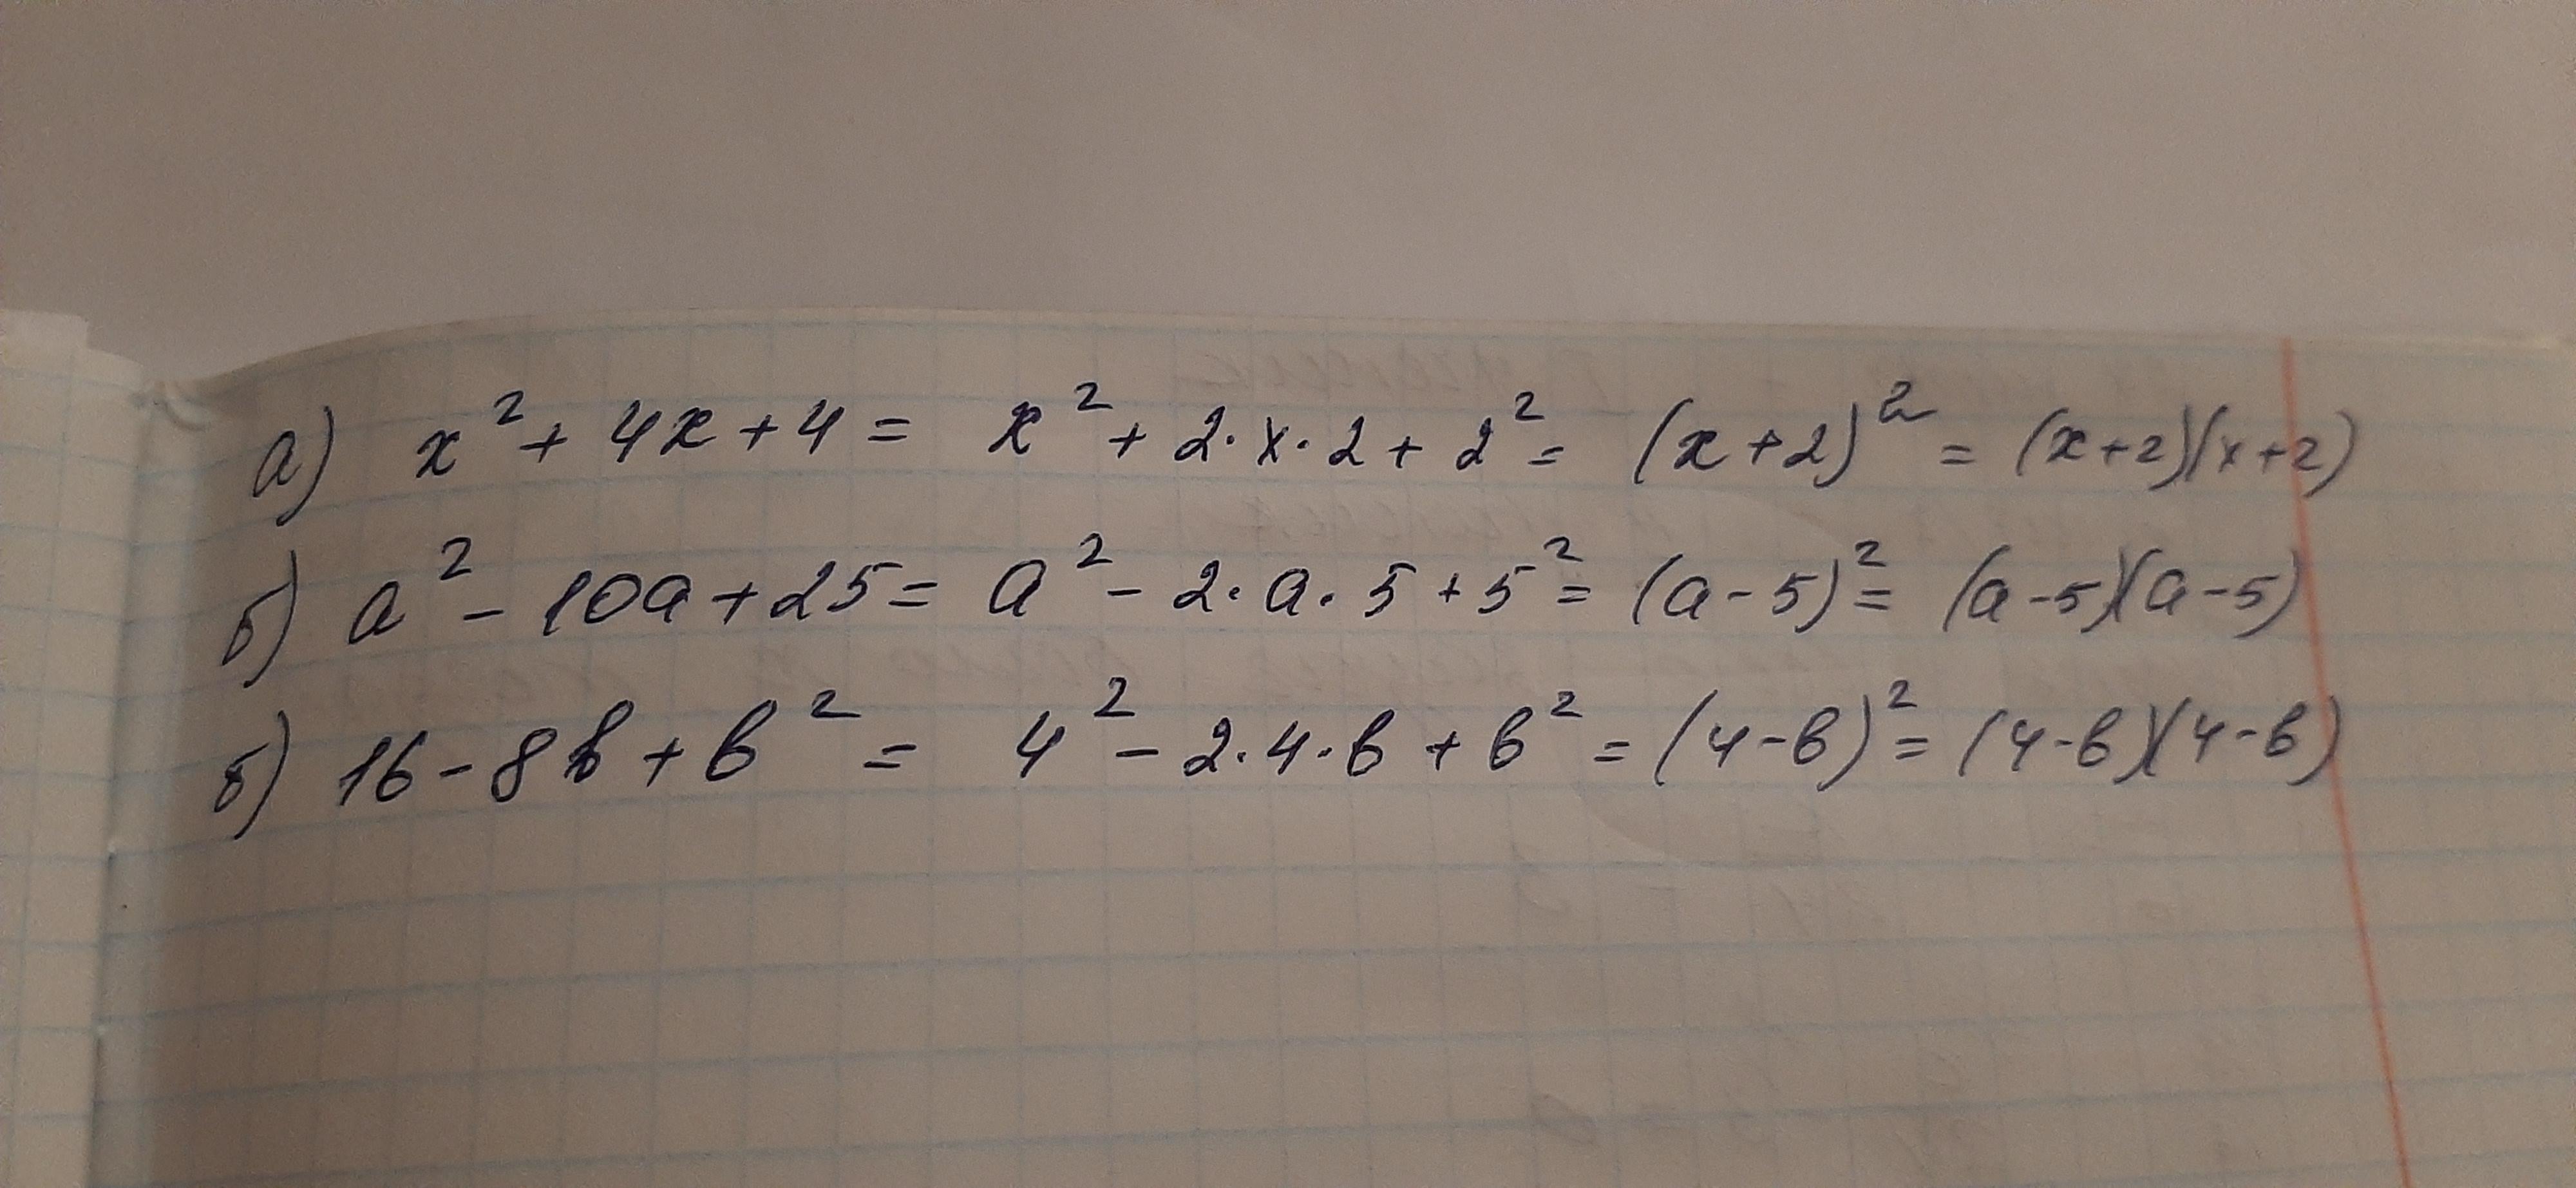 а) x² + 4x + 4 = x² + 2·x·2 + 2² = (x+2)² = (x+2)(x+2)
б) a² - 10a + 25 = a² - 2·a·5 + 5² = (a-5)² = (a-5)(a-5)
б) 16 - 8b + b² = 4² - 2·4·b + b² = (4-b)² = (4-b)(4-b)